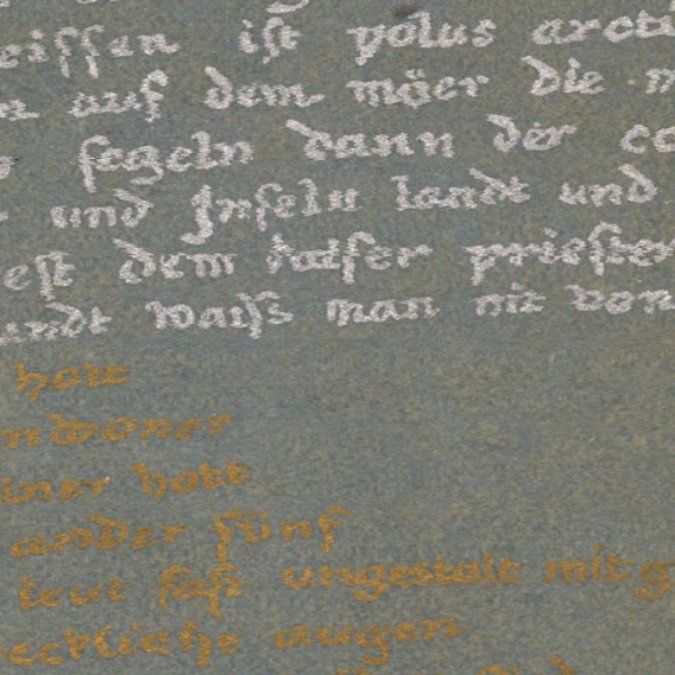 eissen ist polus arcti
auf dem möer die
segeln dann der co
und Jnseln landt und
est dem kaiser priester
undt waiss man nit von
hott
inwoner
iner hott
ander fünf
leut fast ungestalt mit g
eckliche augen